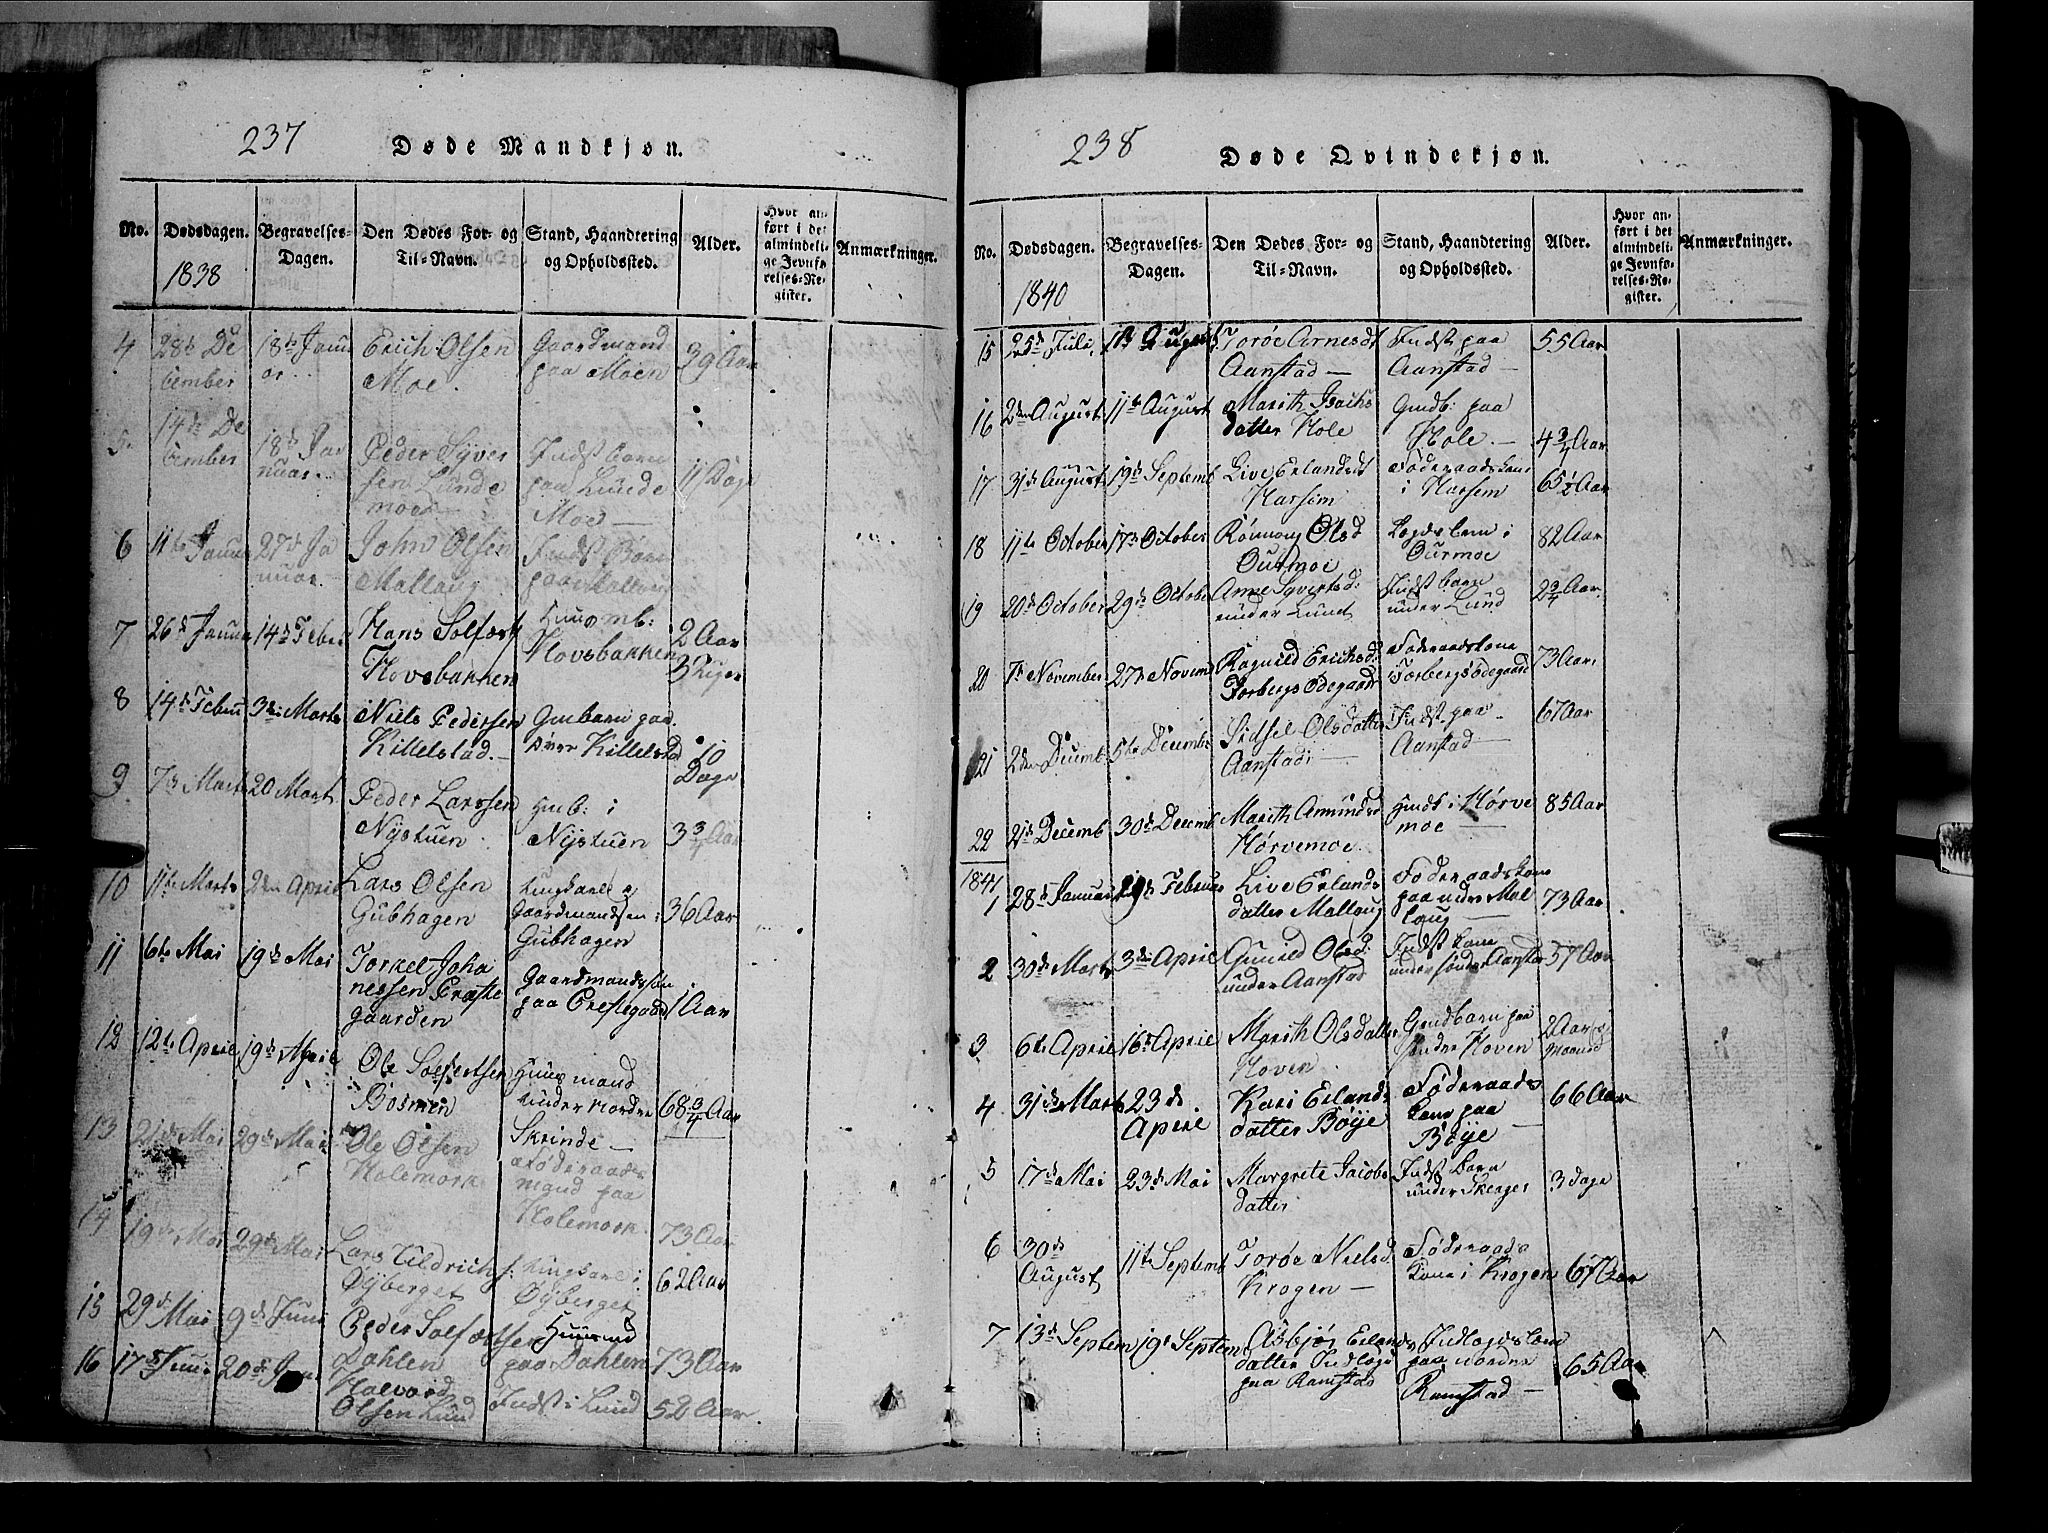 237
Døde Mandkjøn.
No.
Dødsdagen.
1838
Begravelses-
Dagen.
Den Dødes For- og
Til-Navn.
Stand, Haandtering
og Opholdssted.
Alder.
Hvor an-
ført i det
almindeli-
ge Jevnfø-
relses-Re-
gister.
Anmærkninger.
4
28de De
cember
18de Janu
ar
Erich Olsen
Moe.
Gaardmand
paa Moen
39 Aar
5.
14de De
cember
18de Jan
nuar
Peder Syver
sen Lunde
moe
Indst barn
paa Lunde
Moe
11 Dage
6
11te Januar
27de Ja
nuar
John Olsen
Mallaug
Indst Barn
paa Mallaug
7
26de Januar
14de Febr
Hans Solfest
Hovsbakken
Huusmb:
Hovsbakken
2 Aar
3 Uger
8
14de Febru
3die Marts
Niels Pedersen
Killelstad.
Gmbarn paa
Killelstad
10
Dage
9
7de Marts
20 Mart
Peder Larssen
Nystuen
Hmb: i
Nystuen
3 3/4 Aar
10
11te Marts
2den April
Lars Olsen
Gubhagen
Gaardmandssøn
Gubhagen
36 Aar
11
6te Mai
19de Mai
Torkel Joha
nessen Præste
gaarden
Gaardmandssøn
paa Prestegaard
1 Aar
12
12te April
19de April
Ole Solfestsen
Bosmen
Huusmand
under Nordre
Skrinde
68 3/4 Aar
13
21de Mai
29de Mai
Ole Olsen
Holemork
Føderaads
mand paa
Holemork
73 Aar
14
19de Mai
29de Mai
Lars Uldrichs
Øyberget
Øyberget
62 Aar
15
29de Mai
9de Juni
Peder Solfestsen
Dahlen
Huusmd
paa Dahlen
73 Aar
16
17de Juni
20de Juni
Halvord
Olsen Lund
Indst i Lund
52 Aar
238
Døde Qvindekjøn.
No.
Dødsdagen.
1840
Begravelses-
Dagen.
Den Dødes For- og
Til-Navn.
Stand, Haandtering
og Opholdssted.
Alder.
Hvor an-
ført i det
almindeli-
ge Jevnfø-
relses-Re-
gister.
Anmærkninger.
15
25de Juli
August
Torøe Arnesdt
Aanstad
Indst paa
Aanstad
55 Aar
16
2den August
11te August
Marith Isachs
datter Hole
Gmdb: paa
Hole
4 3/4 Aar
17
31de August
19de Septemb
Live Erlandsdt
Harsem
Føderaadskone
i Harsem
65 1/2 Aar
18
11te October
17de October
Rønnoug Olsd
Ourmoe
Legdslem i
Ourmoe
82 Aar
19
20de October
29de October
Anne Syvertsd:
under Lund
Indst barn
under Lund
2 3/4 Aar
20
1ste November
27de Novemb
Ragnild Erichsd:
Forbergs Ødegaard
Føderaadskone
i Forbergsødegaard
73 Aar
21
2den Decemb
5te Decembr
Sidsel Olsdatter
Aanstad
Indst paa
Aanstad
67 Aar
22
21de Decemb
30de Decemb
Marith Amundsd
Hørvemoe
Hmds i Hørve
moe
85 Aar
1841
1
28de Januar
19de Februar
Live Erlands
datter Mallaug
Føderaadskone
paa nedre Mal
laug
73 Aar
2
30de Marts
3die April
Gunild Olsd:
under Aanstad
Indst kone
under søndre Aanstad
57 Aar
3
6te April
16de April
Marith Olsdatter
Hoven
Gmdbarn paa
Hoven
2 Aar
Maaned
4
31de Marts
23de
April
Kari Erlands
datter Bøye
Føderaads
kone paa
Bøye
66 Aar
5
17de Mai
23de Mai
Margrete Jacobs
datter
Indst barn
under Skeager
3 dage
6
30de
August
11te Septemb
Torøe Nielsd
Krogen
Føderaads
kone i Krogen
67 Aar
7
13de Septem
19de Septem
Asbjør Erlands
datter Indlogs
paa Ramstad
Indlogdslem
paa nordre
Ramstad
65 Aar